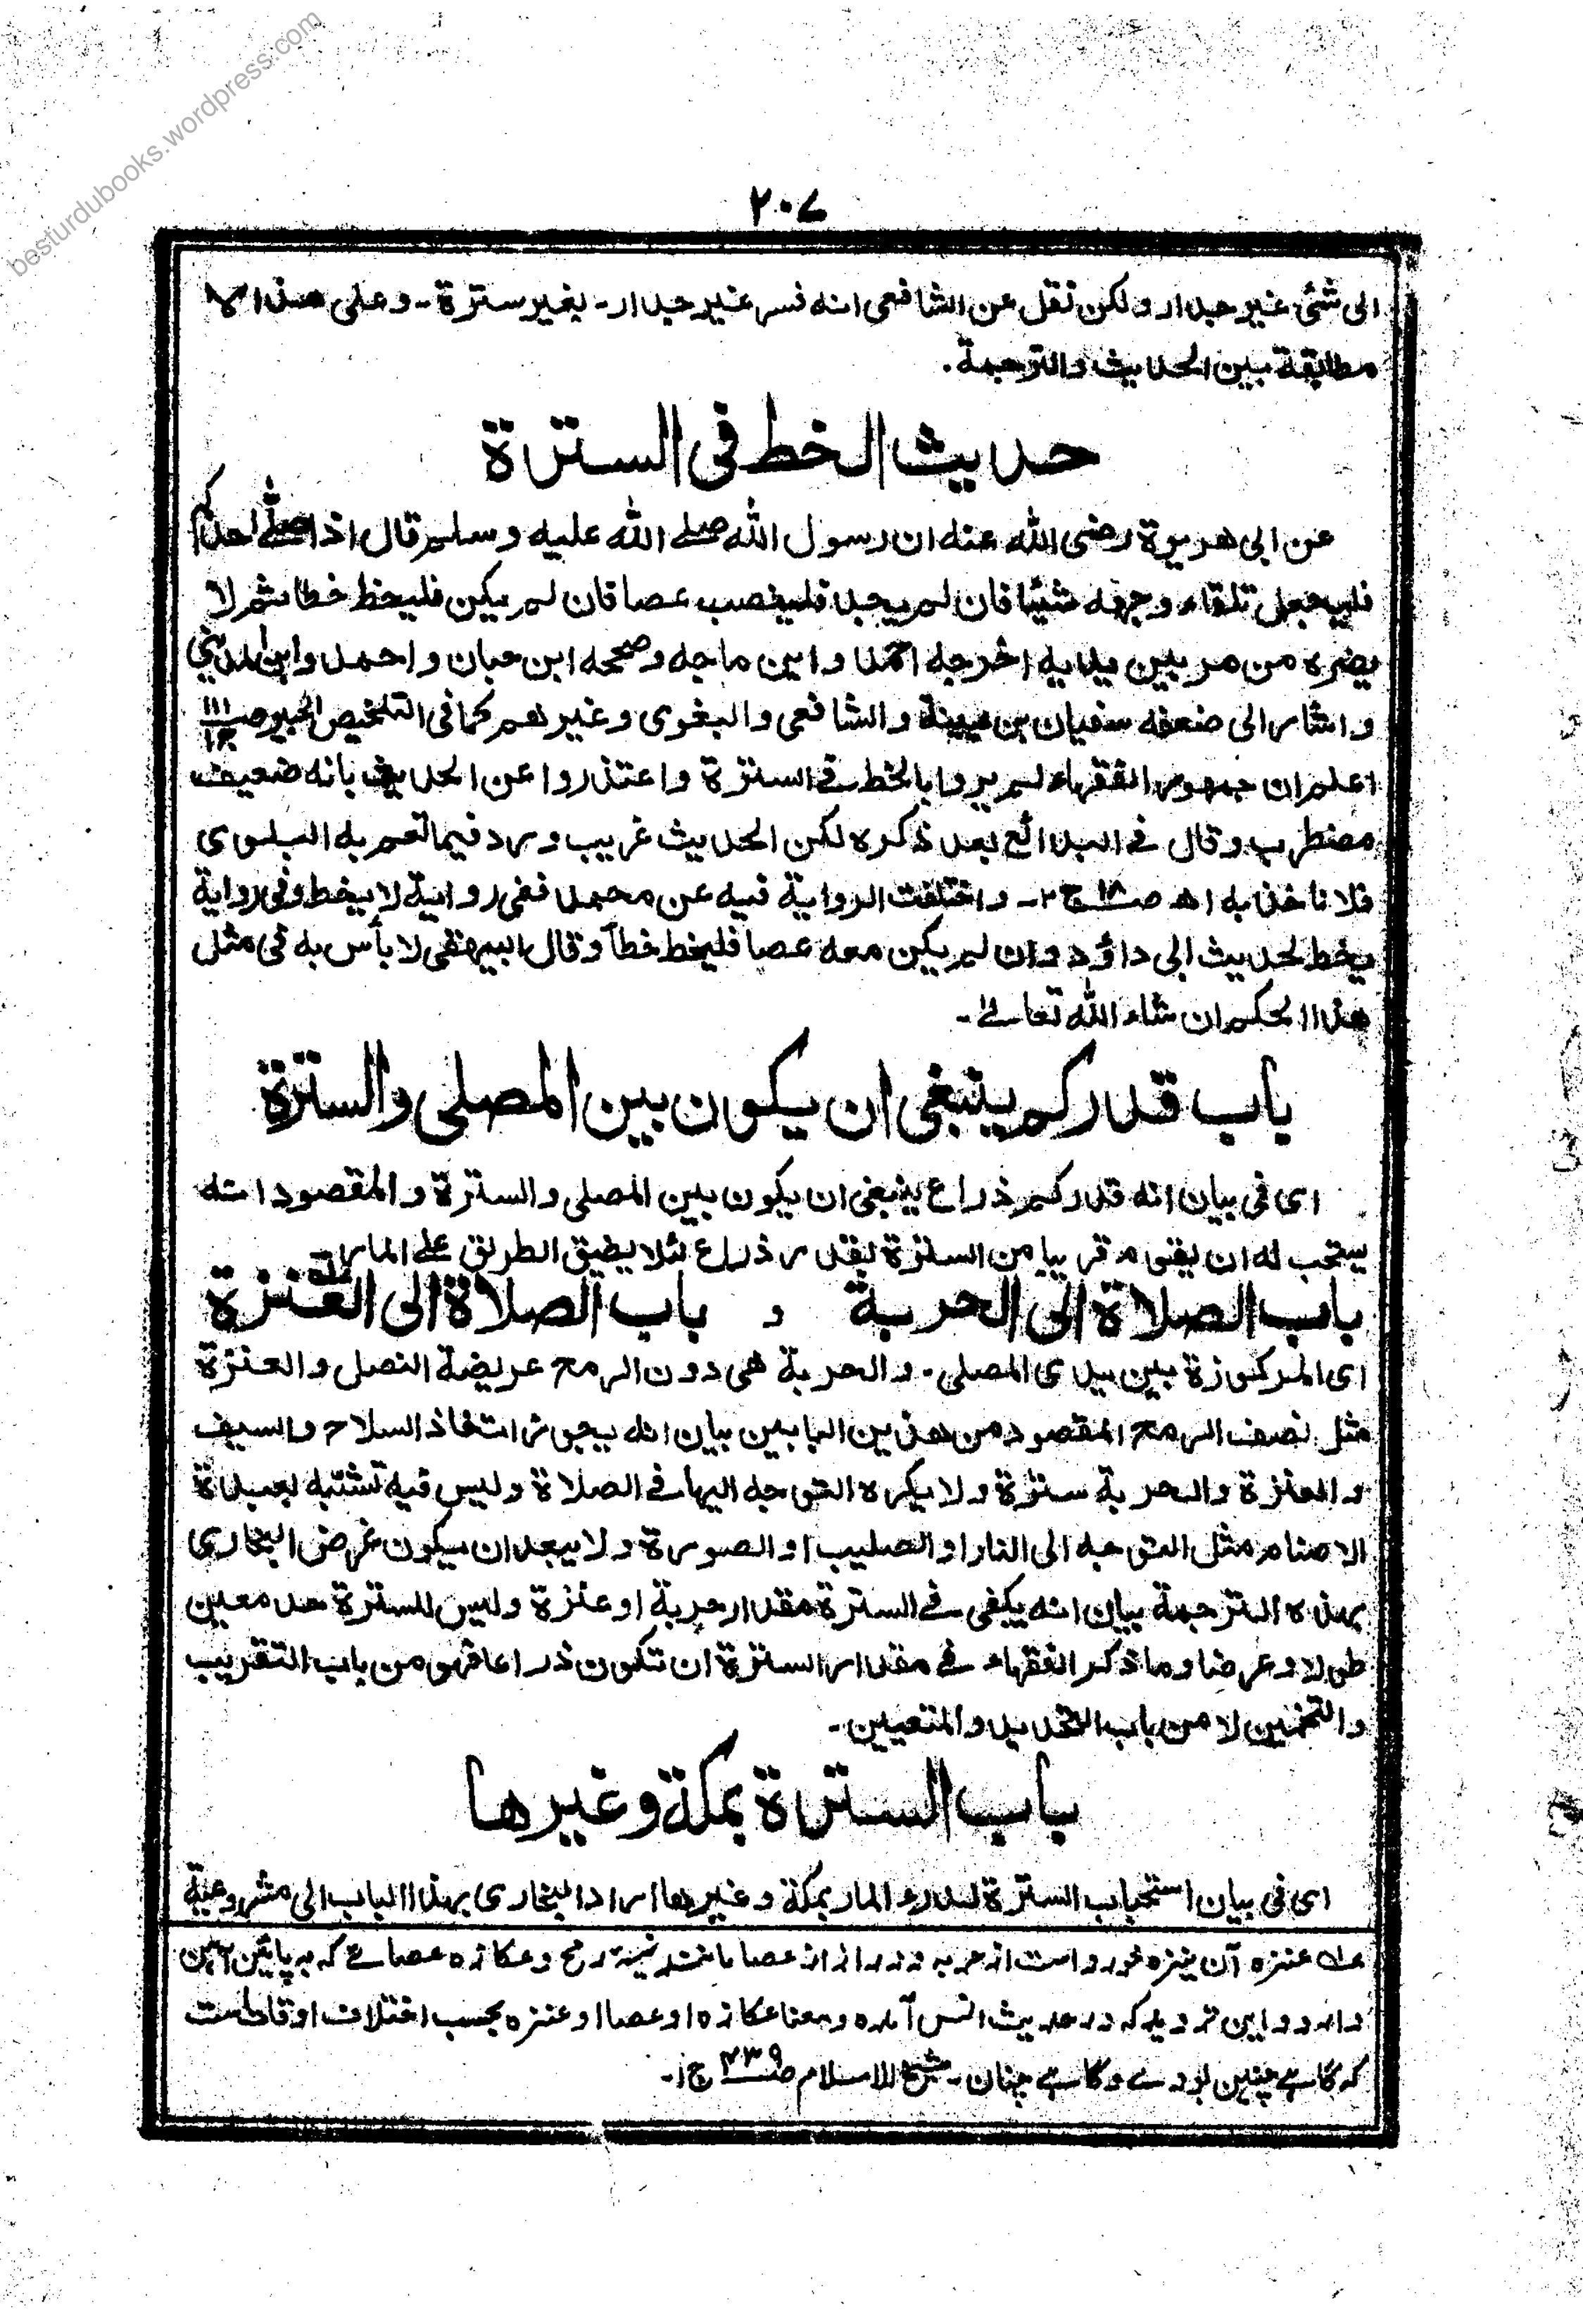 besturdubooks.wordpress.com
٢٠٧
الى شئ غير جدار ولكن نقل عن الشافعى انه فسر غير جدار - بغير سترة - وعلى هذا لا
مطابقة بين الحديث والترجمة .
حديث الخط فى السترة
عن ابى هريرة رضى الله عنه ان رسول الله صلے الله عليه وسلم قال اذا صلّے احدكم
فليجعل تلقاء وجهه شيئا فان لم يجد فلينصب عصا فان لم يكن فليخط خطا ثم لا
يضره من مر بين يديه اخرجه احمد وابن ماجه وصححه ابن حبان واحمد وابن المدينى
واشار الى ضعفه سفيان بن عيينة والشافعى والبغوى وغيرهم كما فى التلخيص الحبير صــ ١١١
اعلم ان جمهور الفقهاء لم يروا بالخط فے السترة واعتذروا عن الحديث بانه ضعيف
مضطرب وقال فے البدائع بعد ذكره لكن الحديث غريب ورد فيما تعم به البلوى
فلا ناخذ به اھ صــ ج ٢ - واختلفت الرواية فيه عن محمد ففى رواية لا يخط وفى رواية
يخط لحديث ابى داؤد وان لم يكن معه عصا فليخط خطآ وقال البيهقى لا بأس به فى مثل
هذا الحكم ان شاء الله تعالےٰ -
باب قدر كم ينبغى ان يكون بين المصلى والسترة
اى فى بيان انه قدر كم ذراع ينبغى ان يكون بين المصلى والسترة والمقصود انه
يستحب له ان يقوم قريبا من السترة بقدر ذراع لئلا يضيق الطريق علے المار
باب الصلاة الى الحربة و باب الصلاة الى العنزة
اى المركوزة بين يدى المصلى . والحربة هى دون الرمح عريضة النصل والعنزة
مثل نصف الرمح المقصود من هذين البابين بيان انه يجوز اتخاذ السلاح والسيف
والعنزة والحربة سترة ولا يكره التوجه اليها فے الصلاة وليس فيه تشبّه بعبدة
الاصنام مثل التوجه الى النار او الصليب او الصورة ولا يبعد ان يكون غرض البخارى
بهذه الترجمة بيان انه يكفى فے السترة مقدار حربة او عنزة وليس للسترة حد معين
طولا وعرضا وما ذكر الفقهاء فے مقدار السترة ان تكون ذراعا فهو من باب التقريب
والتخمين لا من باب التحديد والتعيين -
باب السترة بمكة وغيرها
اى فى بيان استحباب السترة لدرء المار بمكة وغيرها اراد البخارى بهذا الباب الى مشروعية
عنزه آن نيزه خورد است از حربه ودراز از عصا مانند نيمۀ رمح وعكازه عصائے كه بہ پائين آہن
دارد واين ترديد كه در حديث انس آمده ومعنا عكازه او عصا او عنزه بحسب اختلاف اوقاتست
كه گاہے چنين بودے وگاہے چنان - شيخ الاسلام صــ ٤٣٩ ج ١ -